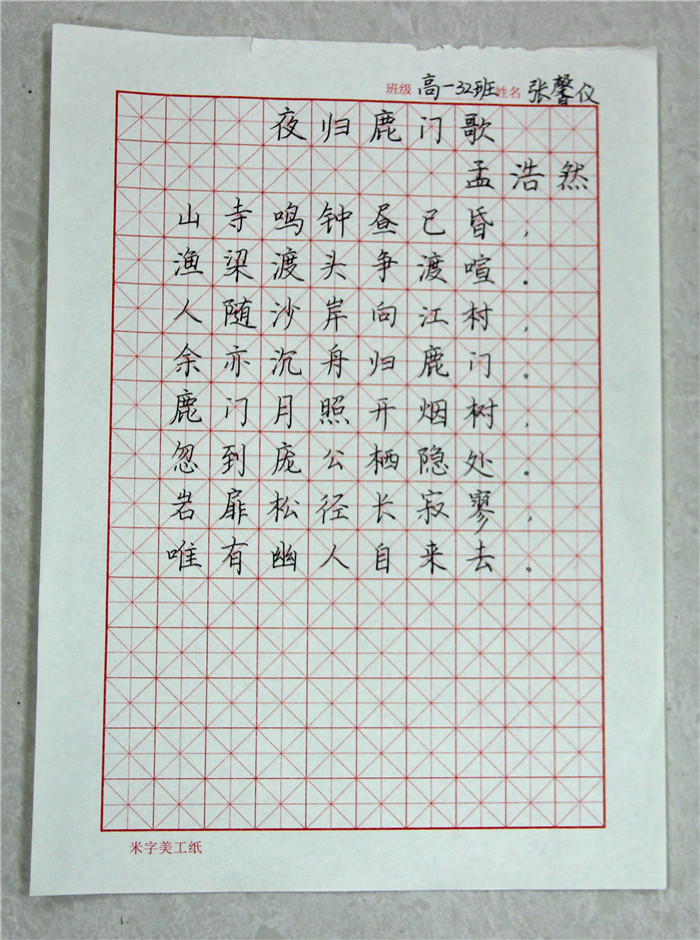 班级 高一32班 姓名 张馨仪
夜归鹿门歌
孟浩然
山寺鸣钟昼已昏，
渔梁渡头争渡喧。
人随沙岸向江村，
余亦沉舟归鹿门。
鹿门月照开烟树，
忽到庞公栖隐处。
岩扉松径长寂寥，
唯有幽人自来去。
米字美工纸